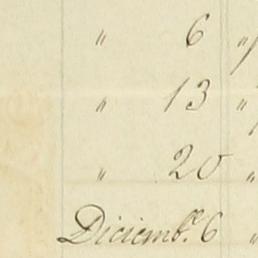 " 6 "
" 13 "
" 20 "
Diciemb.e 6 "